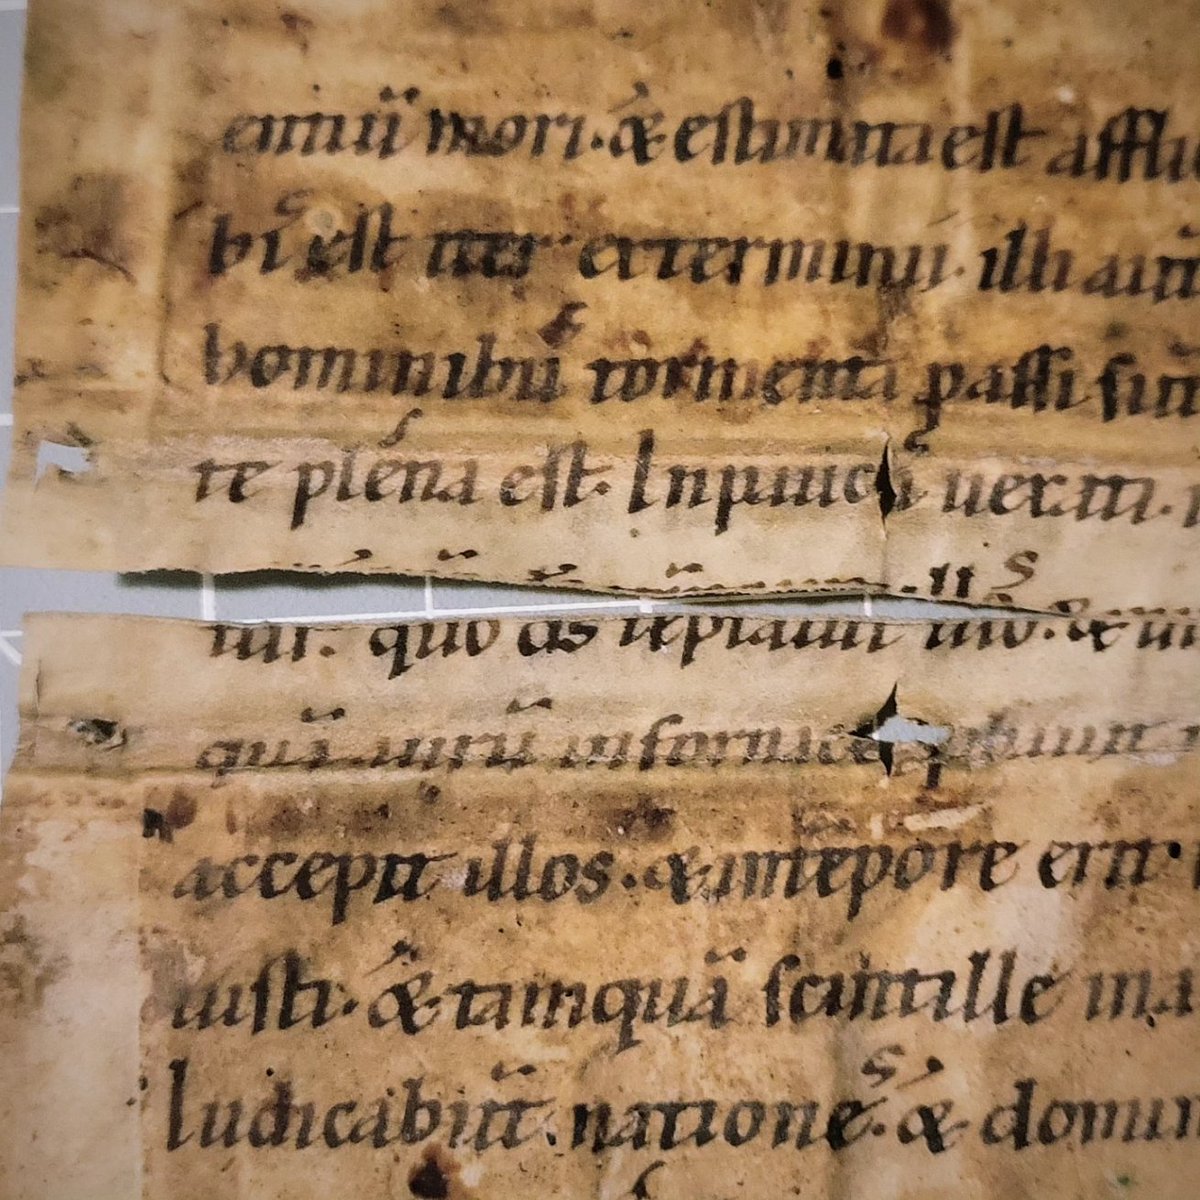 entiū mori. & estimata est afflic
bi᷒ est iter exterminii. illi autē
hominibu᷒ tormenta passi sūt
te plena est. In pauci᷒ uexati.
tur. quō dš tēptauit illo᷒. & in
quā aurū in fornace pbauit
accepit illos. & in tēpore erit
iusti. & tamquā scintille
Iudicabūt natione᷒. & domin